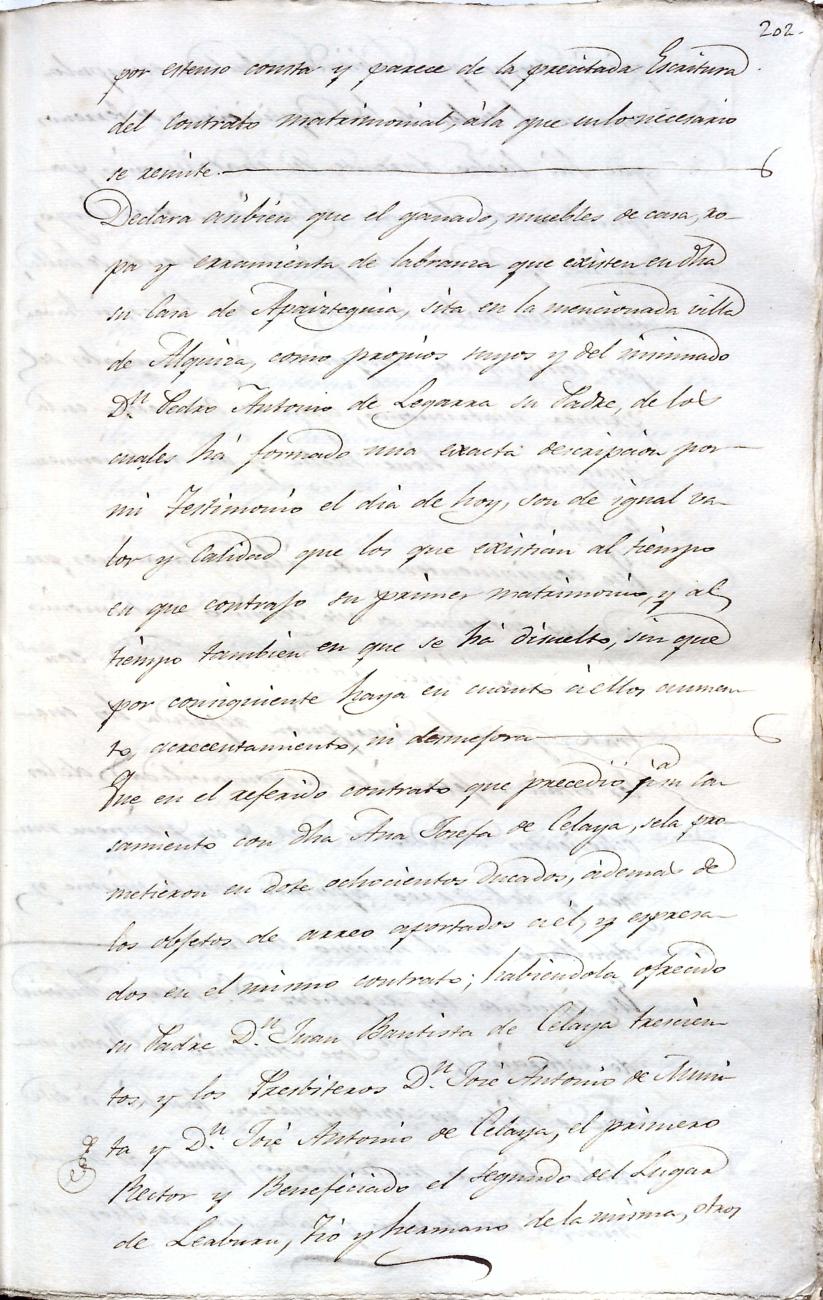 202.
por estenso consta y parece de la precitada Escritura
del Contrato matrimonial, á la que en lo necesario
se remite.
Declara asibien que el ganado, muebles de casa, ro-
pa y erramienta de labranza que existen en dha
su Casa de Apaizteguia, sita en la mencionada villa
de Alquiza, como propios suyos y del insinuado
Dn. Pedro Antonio de Legarra su Padre, de los
cuales há formado una exacta descripcion por
mi Testimonio el dia de hoy, son de igual va-
lor y Calidad que los que existian al tiempo
en que contrajo su primer matrimonio, y al
tiempo tambien en que se há disuelto, sin que
por consiguiente haya en cuanto á ellos aumen-
to, acrecentamiento, ni desmejora
Que en el referido contrato que precedió pa su ca-
samiento con dha Ana Josefa de Celaya, se la pro-
metieron en dote ochocientos Ducados, ademas de
los objetos de arreo aportados á él, y espresa-
dos en el mismo contrato; habiendola ofrecido
su Padre Dn. Juan Bautista de Celaya trescien-
tos, y los Presbiteros Dn. José Antonio de Muni-
ta y Dn. José Antonio de Celaya, el primero
Rector y Beneficiado el segundo del Lugar
de Leaburu, Tio y hermano de la misma, otros